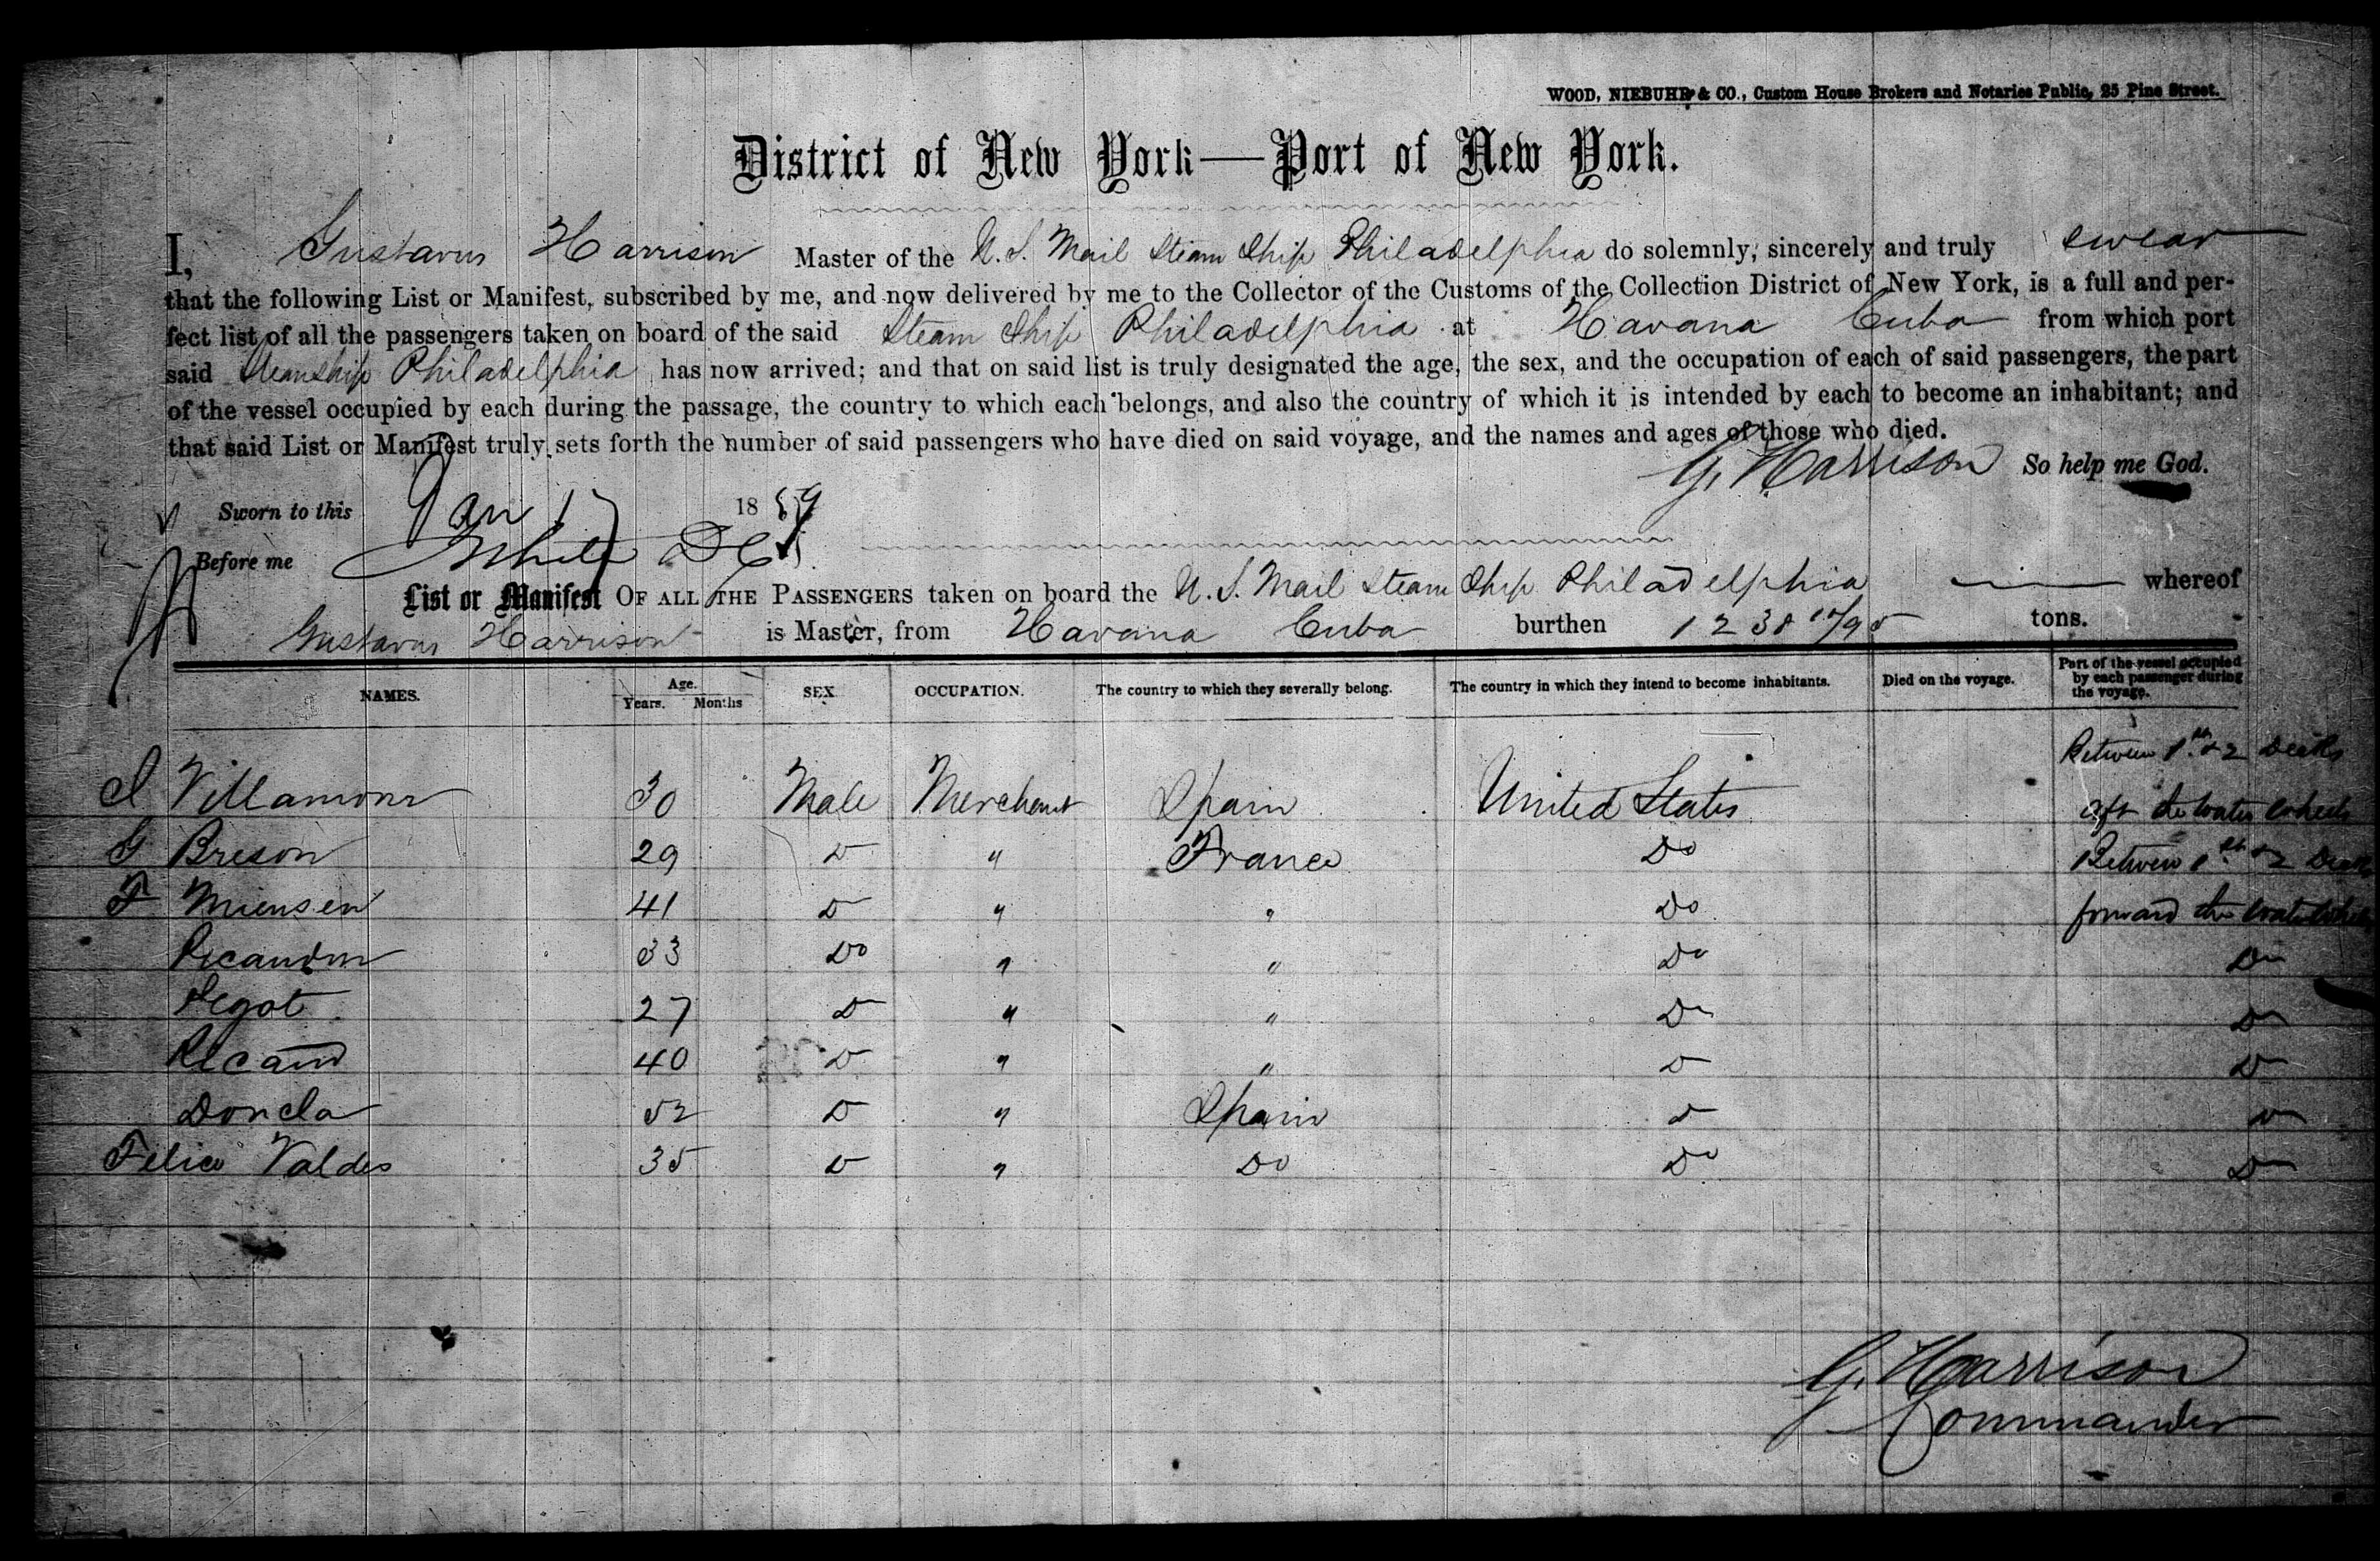 WOOD, NIEBUHR & CO., Custom House Brokers and Notaries Public, 25 Pine Street.
District of New York—Port of New York.
I, Gustavus Harrison Master of the U. S. Mail Steam Ship Philadelphia do solemnly, sincerely and truly swear
that the following List or Manifest, subscribed by me, and now delivered by me to the Collector of the Customs of the Collection District of New York, is a full and per-
fect list of all the passengers taken on board of the said Steam Ship Philadelphia at Havana Cuba from which port
said Steamship Philadelphia has now arrived; and that on said list is truly designated the age, the sex, and the occupation of each of said passengers, the part
of the vessel occupied by each during the passage, the country to which each belongs, and also the country of which it is intended by each to become an inhabitant; and
that said List or Manifest truly sets forth the number of said passengers who have died on said voyage, and the names and ages of those who died.
G. Harrison So help me God.
Sworn to this Jan 17 1859
Before me
List or Manifest OF ALL THE PASSENGERS taken on board the U. S. Mail Steam Ship Philadelphia whereof
Gustavus Harrison is Master, from Havana Cuba burthen 1238 tons.
NAMES. Age. Years. Months SEX OCCUPATION. The country to which they severally belong. The country in which they intend to become inhabitants. Died on the voyage. Part of the vessel occupied by each passenger during the voyage.
Between 1st & 2 Decks
30 Male Merchant Spain United States aft the water wheels
G Breson 29 Do " France Do Between 1st & 2 Decks
F Miensen 41 Do " " Do forward the water wheels
33 Do " " Do Do
Segot 27 Do " " Do Do
Ricaud 40 Do " " Do Do
Doncla 52 Do " Spain Do Do
Felice Valdes 35 Do " Do Do Do
G. Harrison
Commander